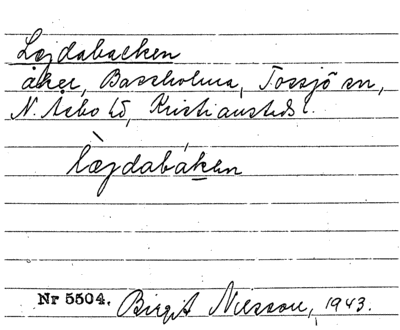 Lejdabacken
åker, Bassholma, Tossjö sn,
N. Åsbo hd, Kristianstads l.
læjdabáken
Nr 5504. Birgit Nilsson, 1943.